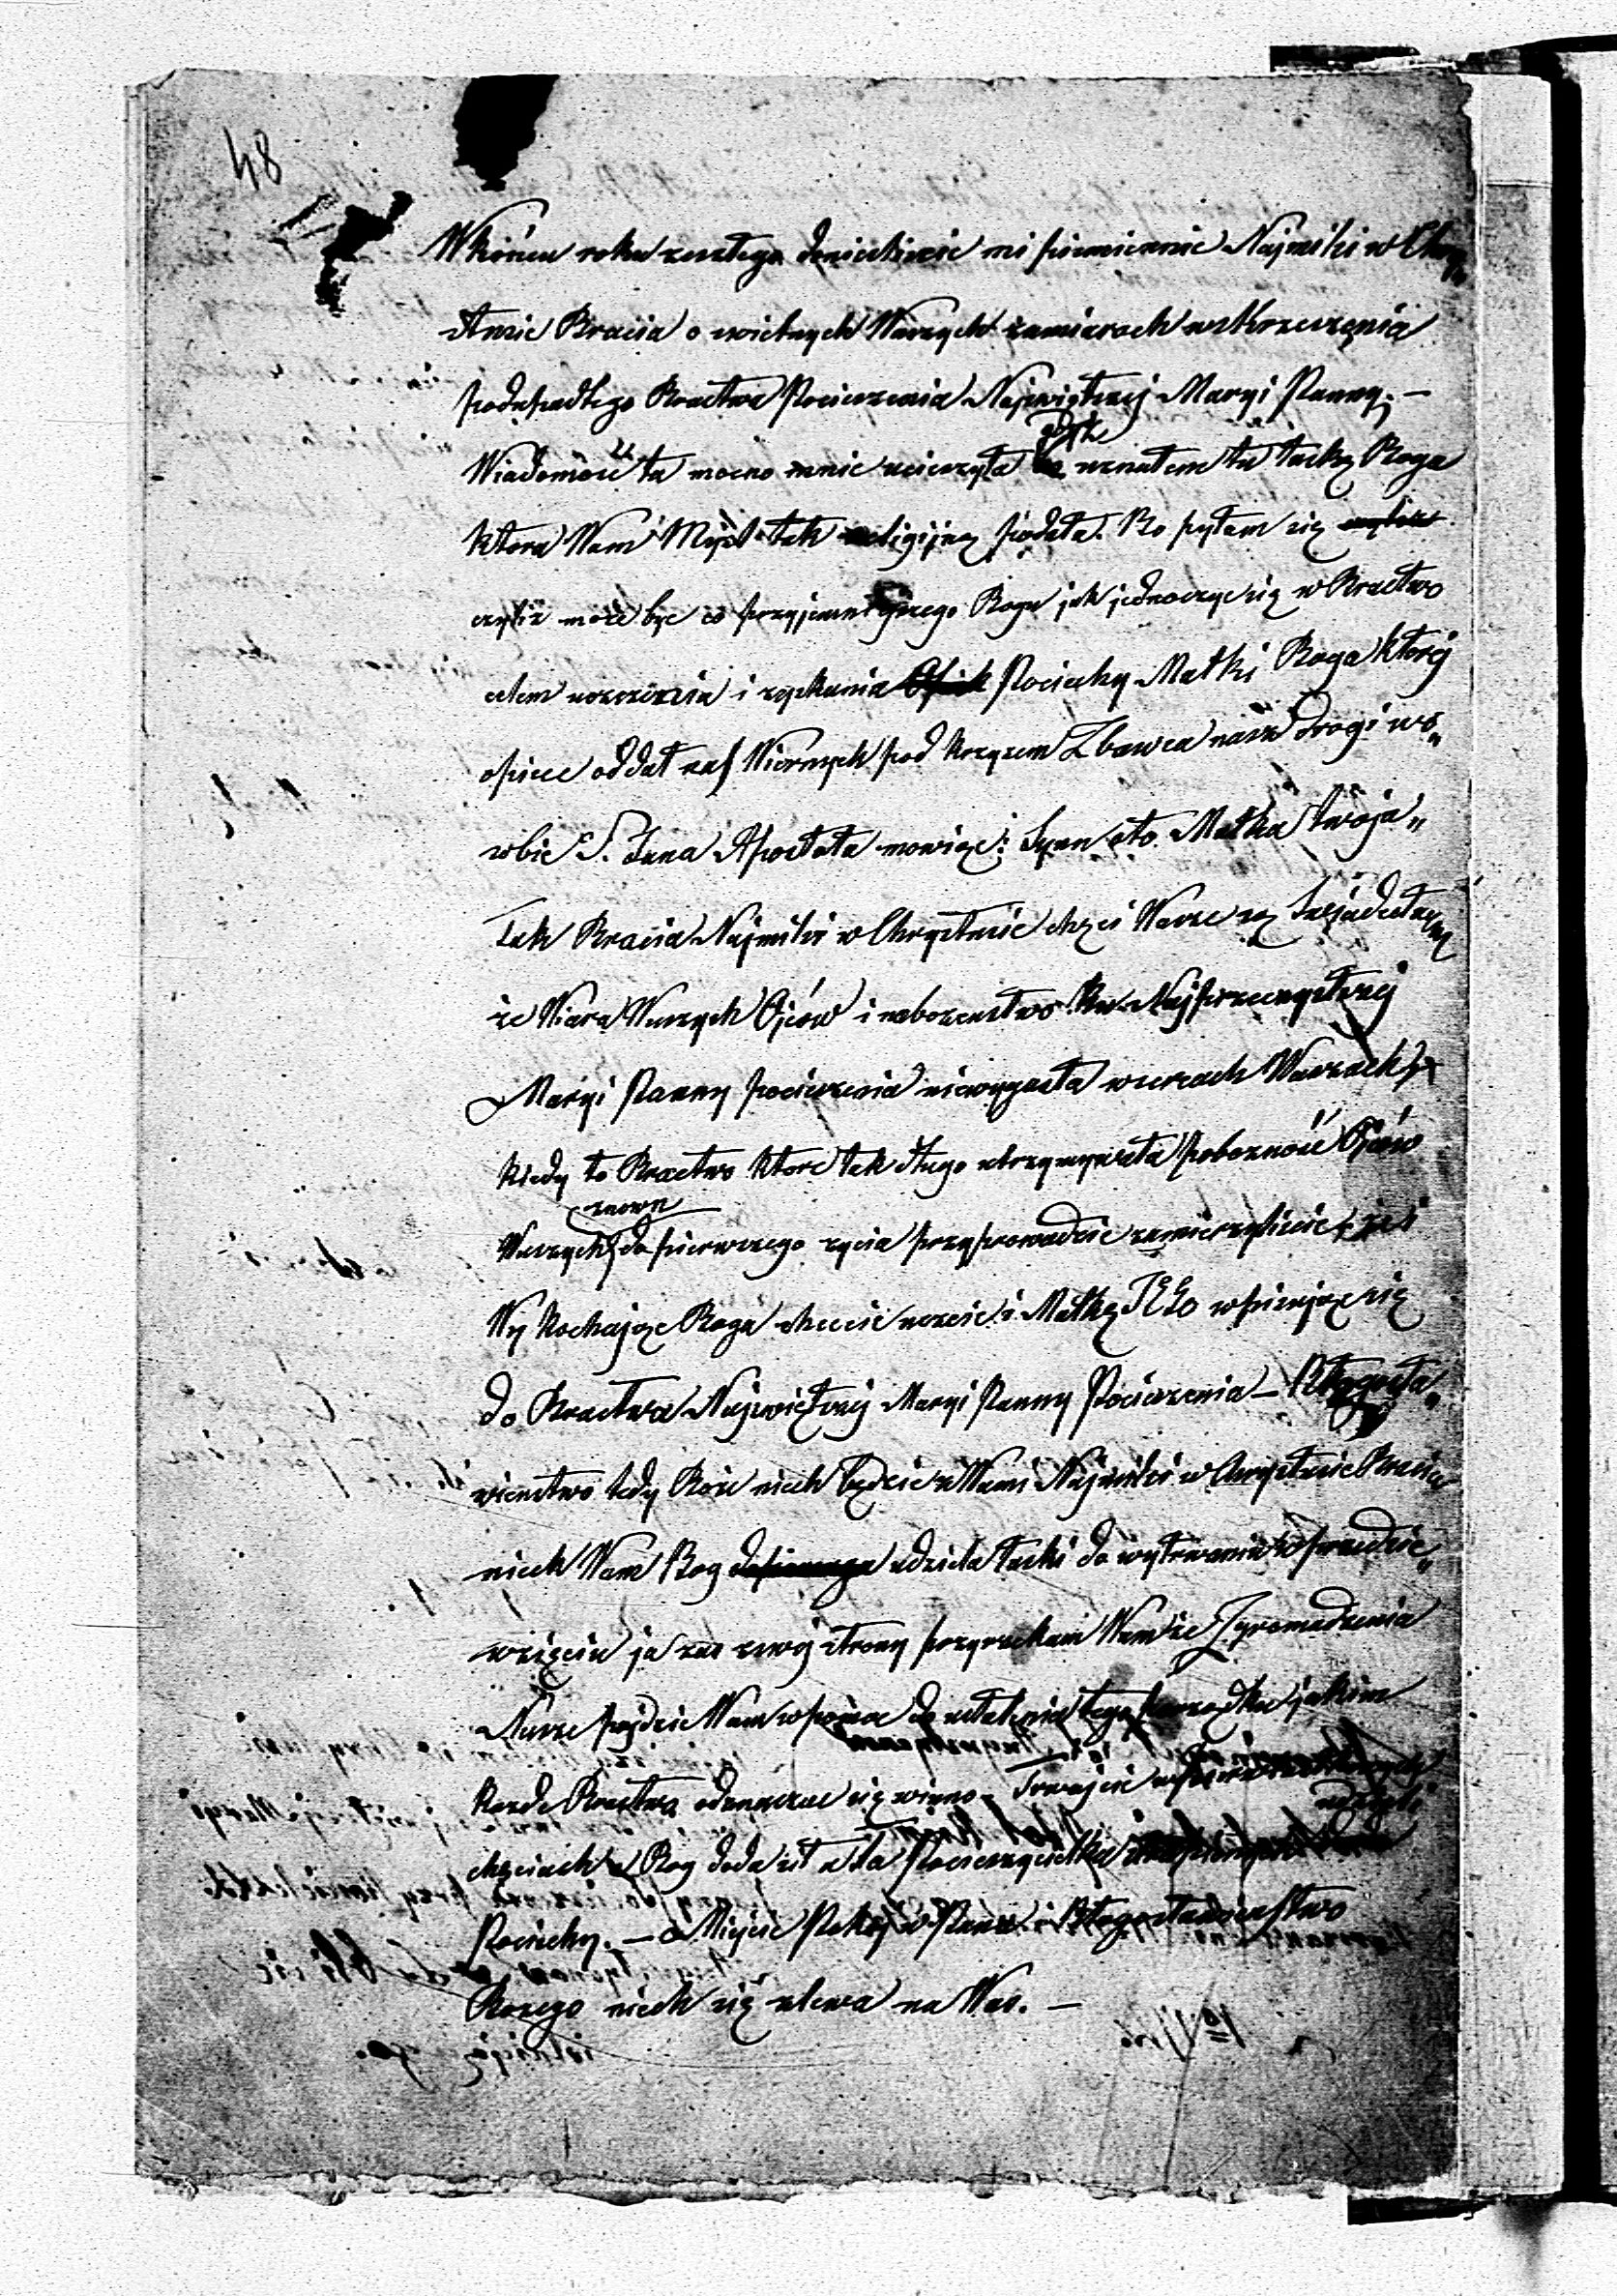 48
W końcu roku zeszłego donieśliście mi piśmiennie Najmilsi w Chry„
stusie Bracia o świetnych Waszych zamiarach wskrzeszenia
podupadłego Bractwa Pocieszenia Najświętszej Maryi Panny. —
gdyż
Wiadomość ta mocno mnie ucieszyła uznałem tu łaskę Boga
która Wam Myśl tak religijną podała. Bo pytam się
czyliż może być co przyjemniejszego Bogu jak jednoczyć się w Bractwo
celem uczczenia i zyskania Pociechy Matki Boga której
opiece oddał nas Wiernych pod krzyżem Zbawca nasz drogi w o„
sobie S. Jana Apostoła mówiąc: Synu oto Matka twoja„
Tak Bracia Najmilsi w Chrystusie chęci Wasze są
że Wiara Waszych Ojców i nabożeństwo ku Najprzeczystszej
Maryi Panny pocieszenia niewygasła w sercach Waszych
kiedy to Bractwo które tak długo utrzymywała pobożność Ojców
znowu
Waszych do pierwszego życia przyprowadzić zamierzyliście, żeś
Wy kochając Boga chcecie uczcić i Matkę JEGo wpisując się
do Bractwa Najświętszej Maryi Panny Pocieszenia — Błogosła„
wieństwo tedy Boże niech będzie z Wami Najmilsi w Chrystusie Bracia
niech Wam Bog udziela łaski do wytrwania w przedsię„
wzięciu ja zaś z swej strony przyrzekam Wam że Zgromadzenia
Nasze pójdzie Wam w pomoc do ustalenia tego porządku jakim
każde Bractwo odznaczać się winno. Trwajcie w
chęciach a Bog doda sił a ta Pocieszycielka
Pociechy. — Miejcie Pokój w Panu i Błogosławieństwo
Bożego niech się zlewa na Was. —